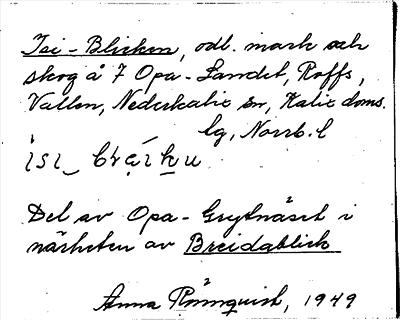 Isi-Blicken, odl. mark och
skog å 7 Opa-Landet, Roffs,
Vallen, Nederkalix sn, Kalix doms.
lg, Norrb. l
Del av Opa-Grytnäset i
närheten av Breidablick
Anna Rönnquist, 1949